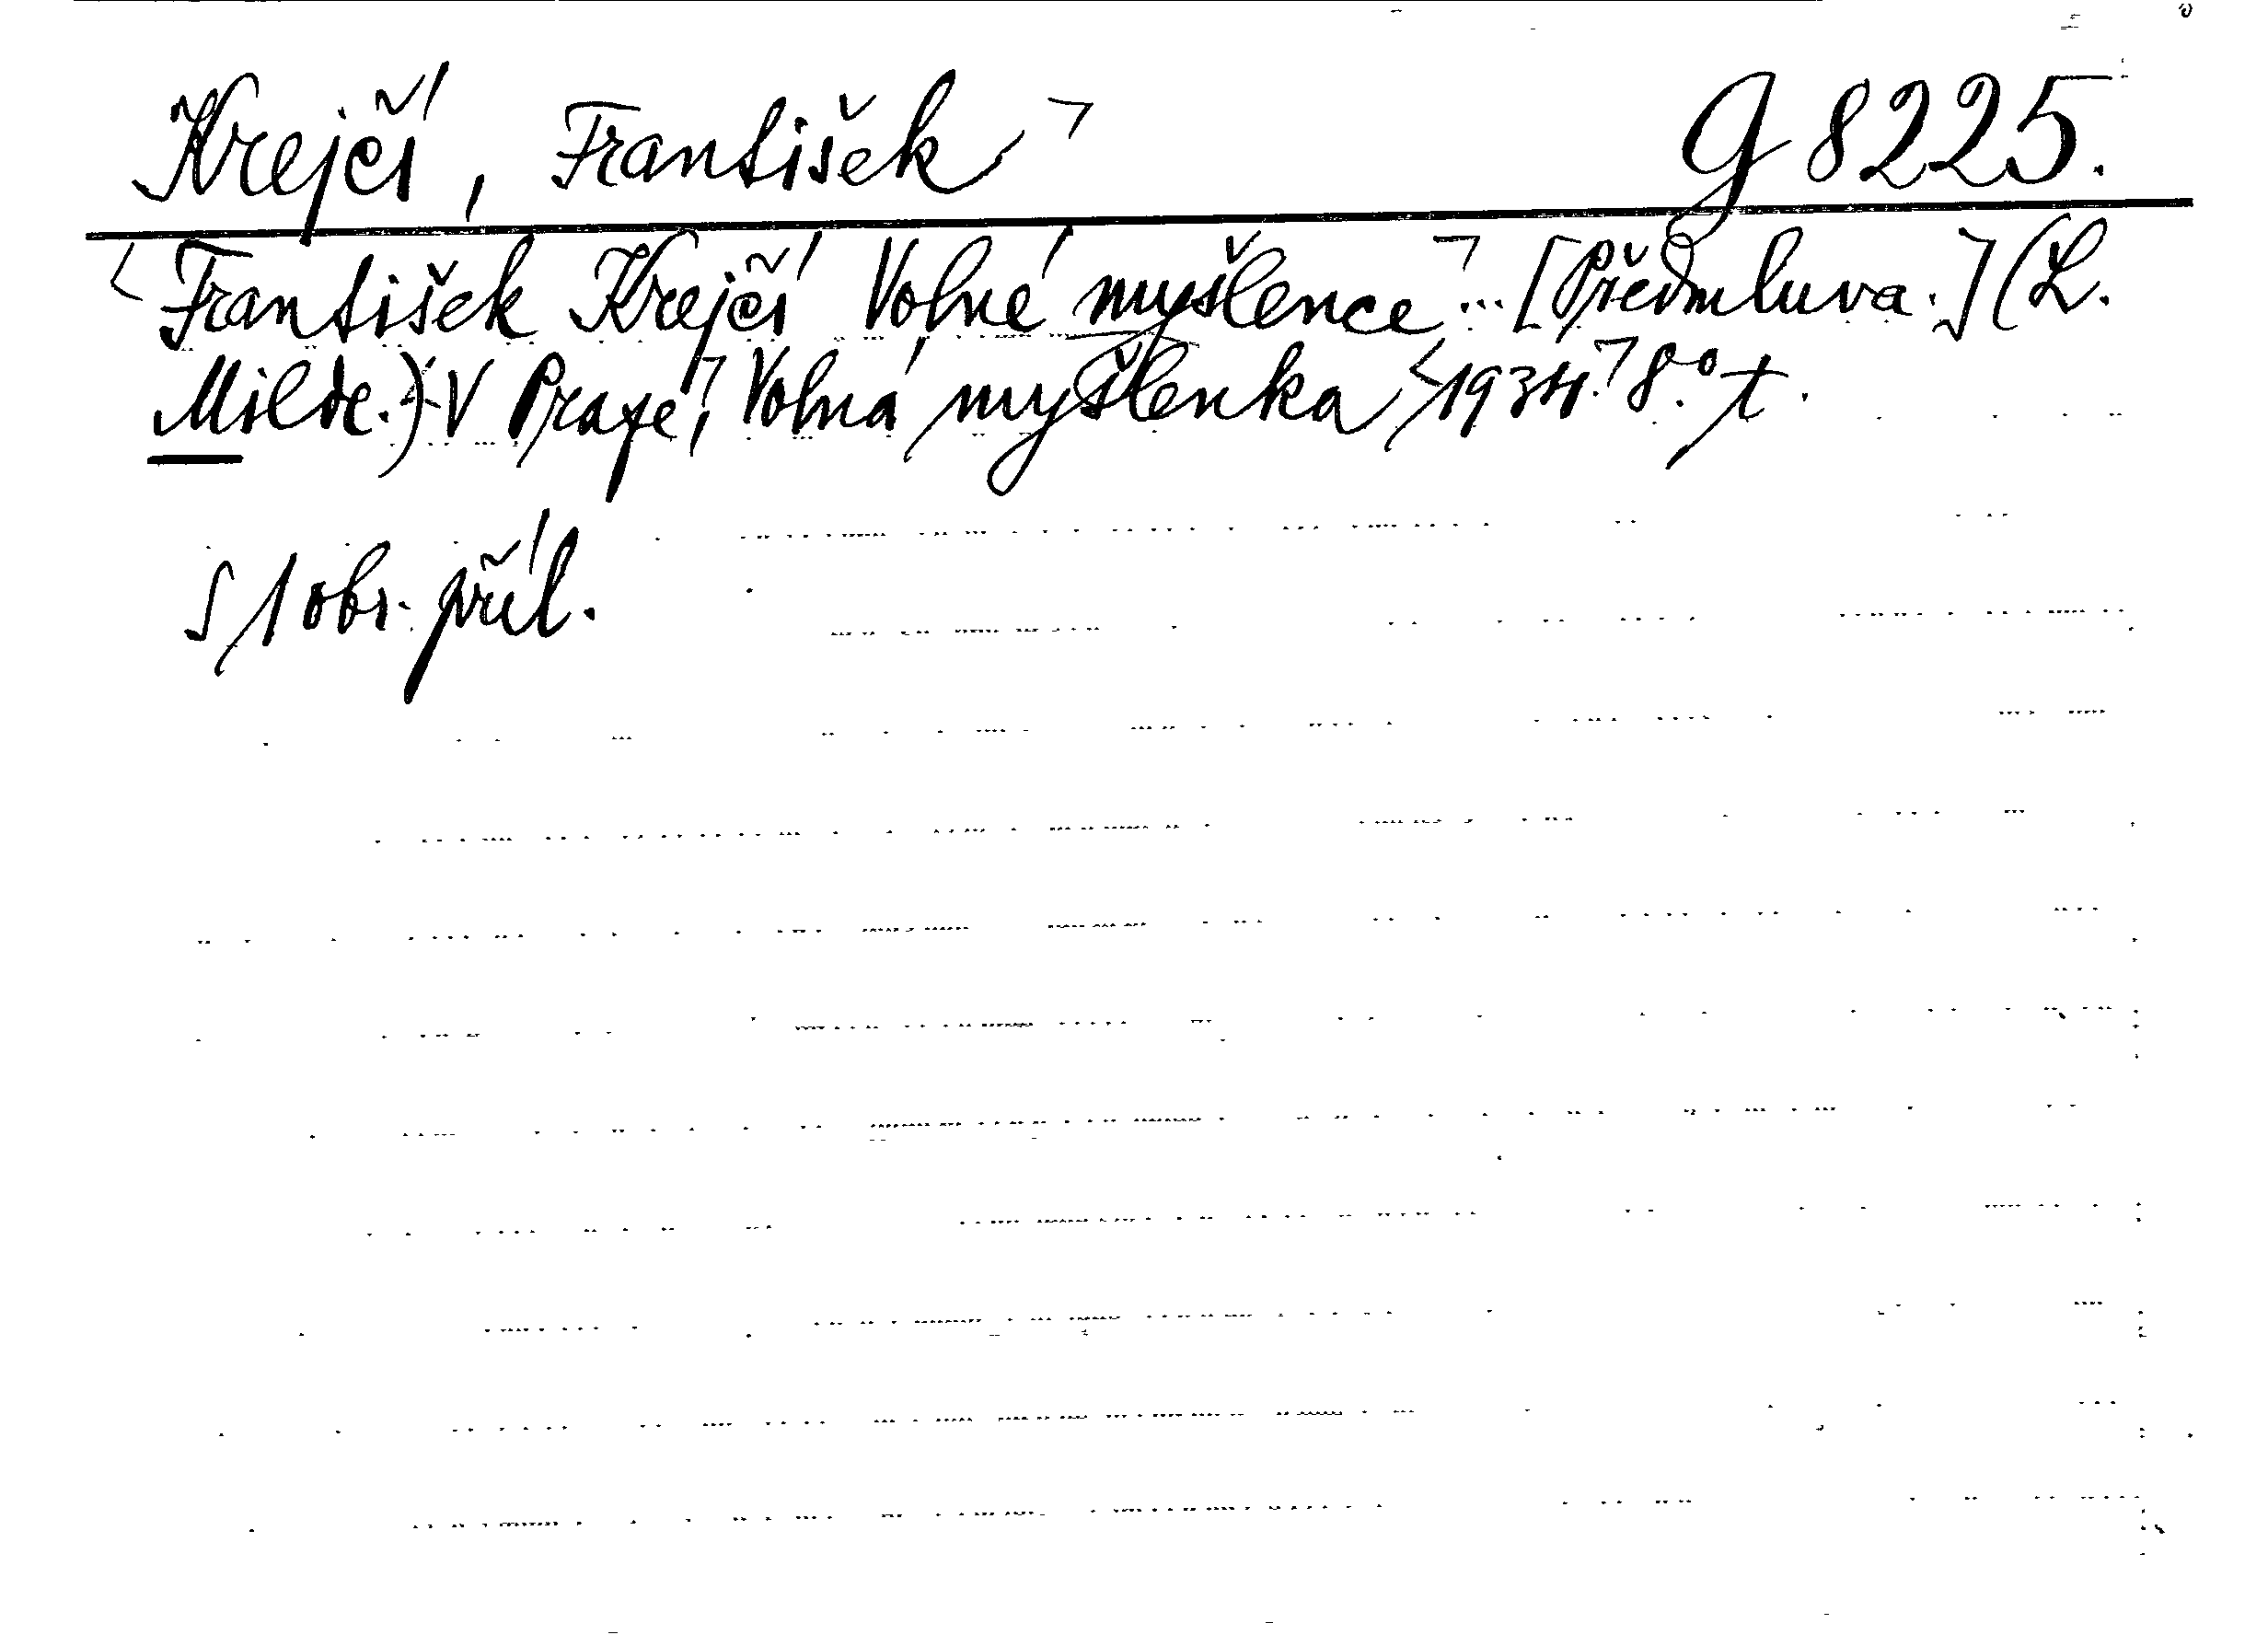 Krejčí, František ㄱ G 8225.
< František Krejčí Volné myšlence ㄱ... [Předmluva.] (L.
Milde.) < V Praze, ㄱ Volná myšlenka < 1934. ㄱ 8.° t.
S 1 obr. příl.